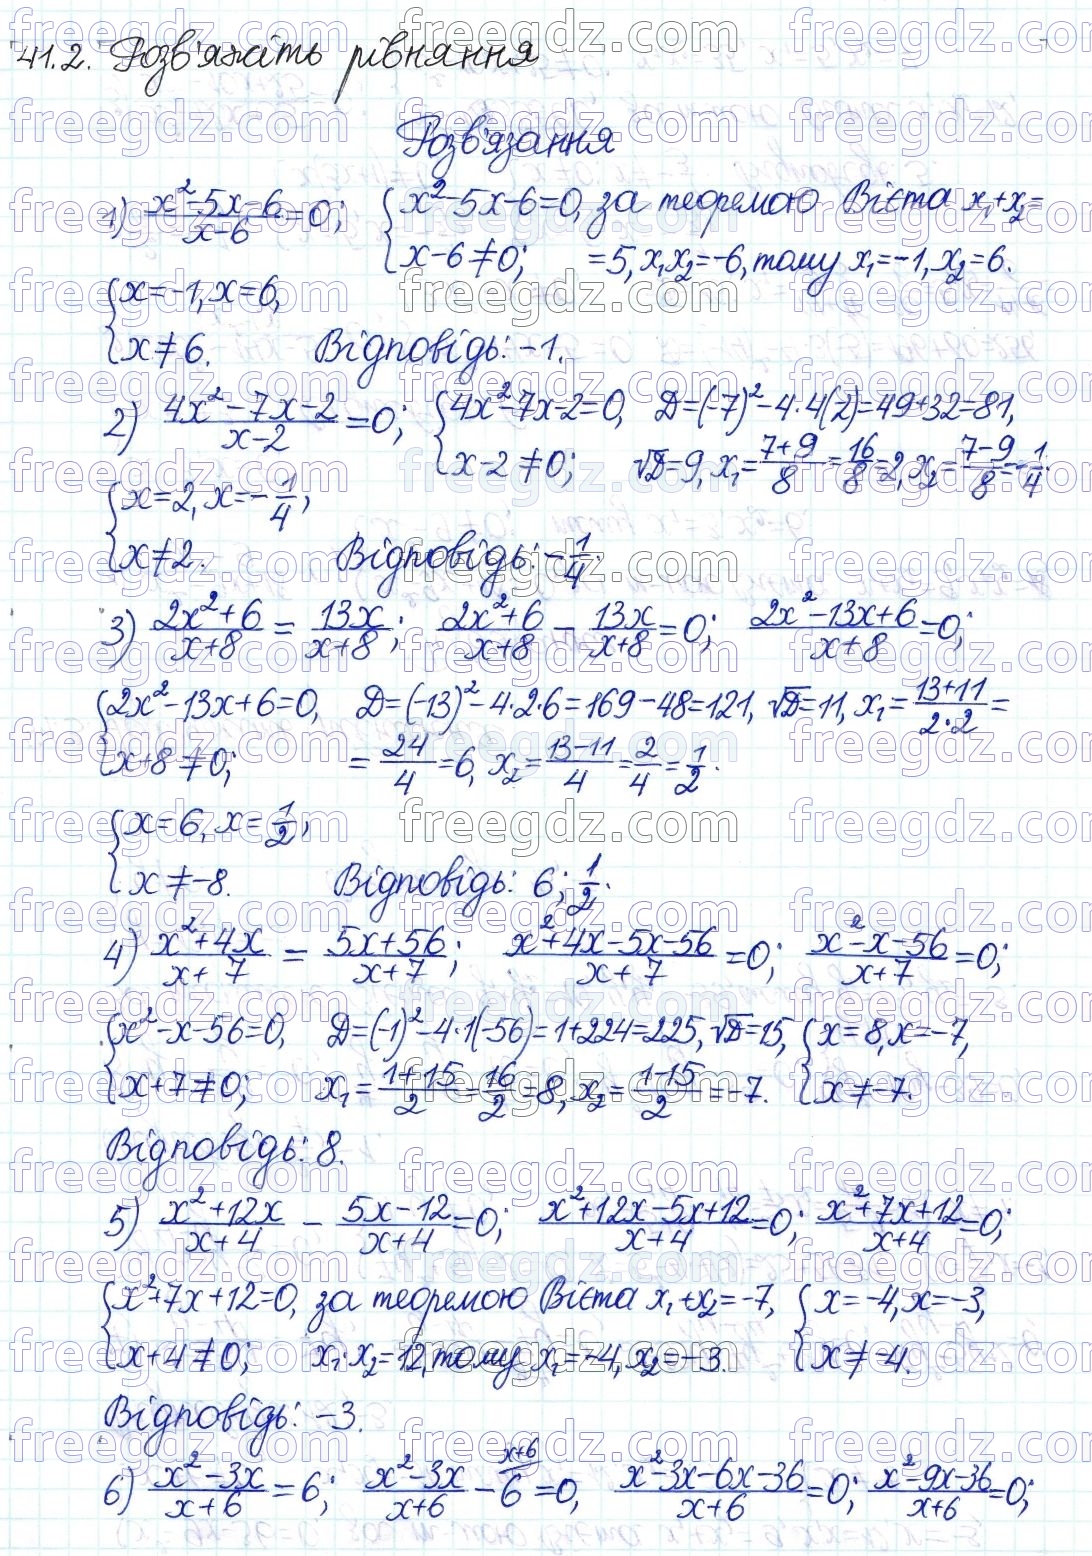 41.2. Розв'яжіть рівняння
Розв'язання
1) (x²-5x-6)/(x-6)=0; { x²-5x-6=0, за теоремою Вієта x₁+x₂=
x-6≠0; =5, x₁x₂=-6, тому x₁=-1, x₂=6.
{ x=-1, x=6,
x≠6. Відповідь: -1.
2) (4x²-7x-2)/(x-2)=0; { 4x²-7x-2=0, D=(-7)²-4·4(2)=49+32=81,
x-2≠0; √D=9, x₁=(7+9)/8=16/8=2, x₂=(7-9)/8=-1/4.
{ x=2, x=-1/4,
x≠2. Відповідь: -1/4.
3) (2x²+6)/(x+8)=13x/(x+8); (2x²+6)/(x+8)-13x/(x+8)=0; (2x²-13x+6)/(x+8)=0;
{ 2x²-13x+6=0, D=(-13)²-4·2·6=169-48=121, √D=11, x₁=(13+11)/(2·2)=
x+8≠0; =24/4=6, x₂=(13-11)/4=2/4=1/2.
{ x=6, x=1/2,
x≠-8. Відповідь: 6; 1/2.
4) (x²+4x)/(x+7)=(5x+56)/(x+7); (x²+4x-5x-56)/(x+7)=0; (x²-x-56)/(x+7)=0;
{ x²-x-56=0, D=(-1)²-4·1(-56)=1+224=225, √D=15, { x=8, x=-7,
x+7≠0; x₁=(1+15)/2=16/2=8, x₂=(1-15)/2=-7. x≠-7.
Відповідь: 8.
5) (x²+12x)/(x+4)-(5x-12)/(x+4)=0; (x²+12x-5x+12)/(x+4)=0; (x²+7x+12)/(x+4)=0;
{ x²+7x+12=0, за теоремою Вієта x₁+x₂=-7, { x=-4, x=-3,
x+4≠0; x₁·x₂=12, тому x₁=-4, x₂=-3. x≠-4.
Відповідь: -3.
6) (x²-3x)/(x+6)=6; (x²-3x)/(x+6)-6 (x+6)=0, (x²-3x-6x-36)/(x+6)=0; (x²-9x-36)/(x+6)=0;